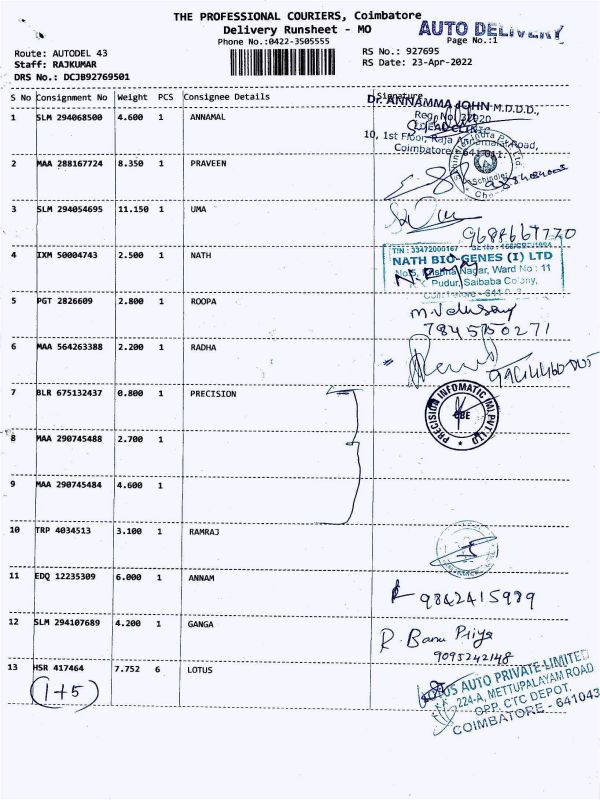 THE PROFESSIONAL COURIERS, Coimbatore
Delivery Runsheet - MO
AUTO DELIVERY
Phone No.:0422-3505555
Page No.:1
Route: AUTODEL 43
RS No.: 927695
Staff: RAJKUMAR
RS Date: 23-Apr-2022
DRS No.: DCJB92769501
S No Consignment No Weight PCS Consignee Details Signature
1 SLM 294068500 4.600 1 ANNAMAL
Dr. ANNAMMA JOHN M.D.D.D.,
Reg. No.
10, 1st Floor, Raja Annamalai Road,
Coimbatore - 641 011.
2 MAA 288167724 8.350 1 PRAVEEN
Schindler
3 SLM 294054695 11.150 1 UMA
4 IXM 50004743 2.500 1 NATH
TIN : 33472000167
NATH BIO-GENES (I) LTD
No.5, Krishna Nagar, Ward No : 11
K.K. Pudur, Saibaba Colony,
5 PGT 2826609 2.800 1 ROOPA
7845150271
6 MAA 564263388 2.200 1 RADHA
7 BLR 675132437 0.800 1 PRECISION
PRECISION INFOMATIC (M) PVT LTD
CBE
8 MAA 290745488 2.700 1
9 MAA 290745484 4.600 1
10 TRP 4034513 3.100 1 RAMRAJ
11 EDQ 12235309 6.000 1 ANNAM
9842415989
12 SLM 294107689 4.200 1 GANGA
R. Banu Priya
9095242148
13 HSR 417464 7.752 6 LOTUS
(1+5)
LOTUS AUTO PRIVATE LIMITED
224-A, METTUPALAYAM ROAD
OPP. CTC DEPOT,
COIMBATORE - 641043